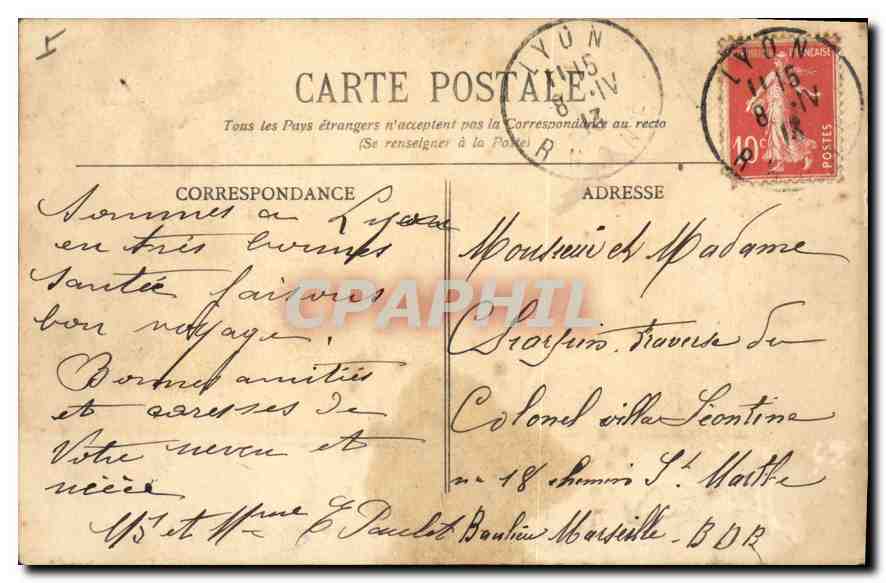 CARTE POSTALE
Tous les Pays étrangers n'acceptent pas la Correspondance au recto
(Se renseigner à la Poste)
LYON
11 15
8 - IV
12
R
LYON
11 15
8 - IV
12
R
FRANÇAISE
10c
POSTES
CORRESPONDANCE
Sommes a Lyon
en très bonnes
santée faisons
bon voyage.
Bonnes amitiés
et caresses de
Votre neveu et
nièce
Mr et Mme E Paulet
ADRESSE
Monsieur et Madame
traverse du
Colonel villa Léontine
no 18 chemin St Marthe
Banlieu Marseille - BDR
CPAPHIL